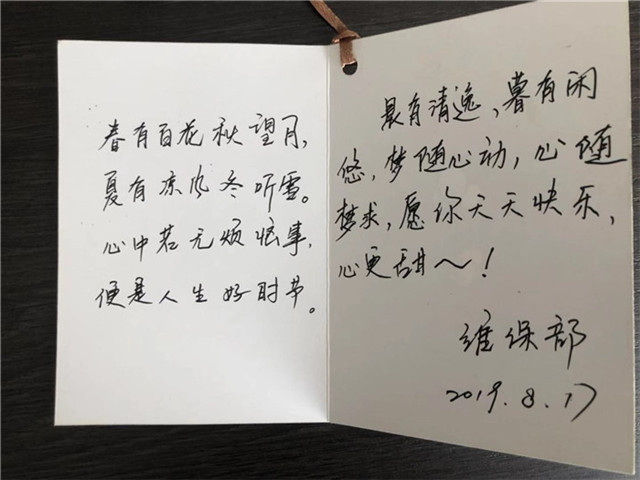 春有百花秋望月,
夏有凉风冬听雪。
心中若无烦恼事,
便是人生好时节。
晨有清逸,暮有闲
悠,梦随心动,心随
梦求,愿你天天快乐,
心更甜～!
维保部
2019.8.17